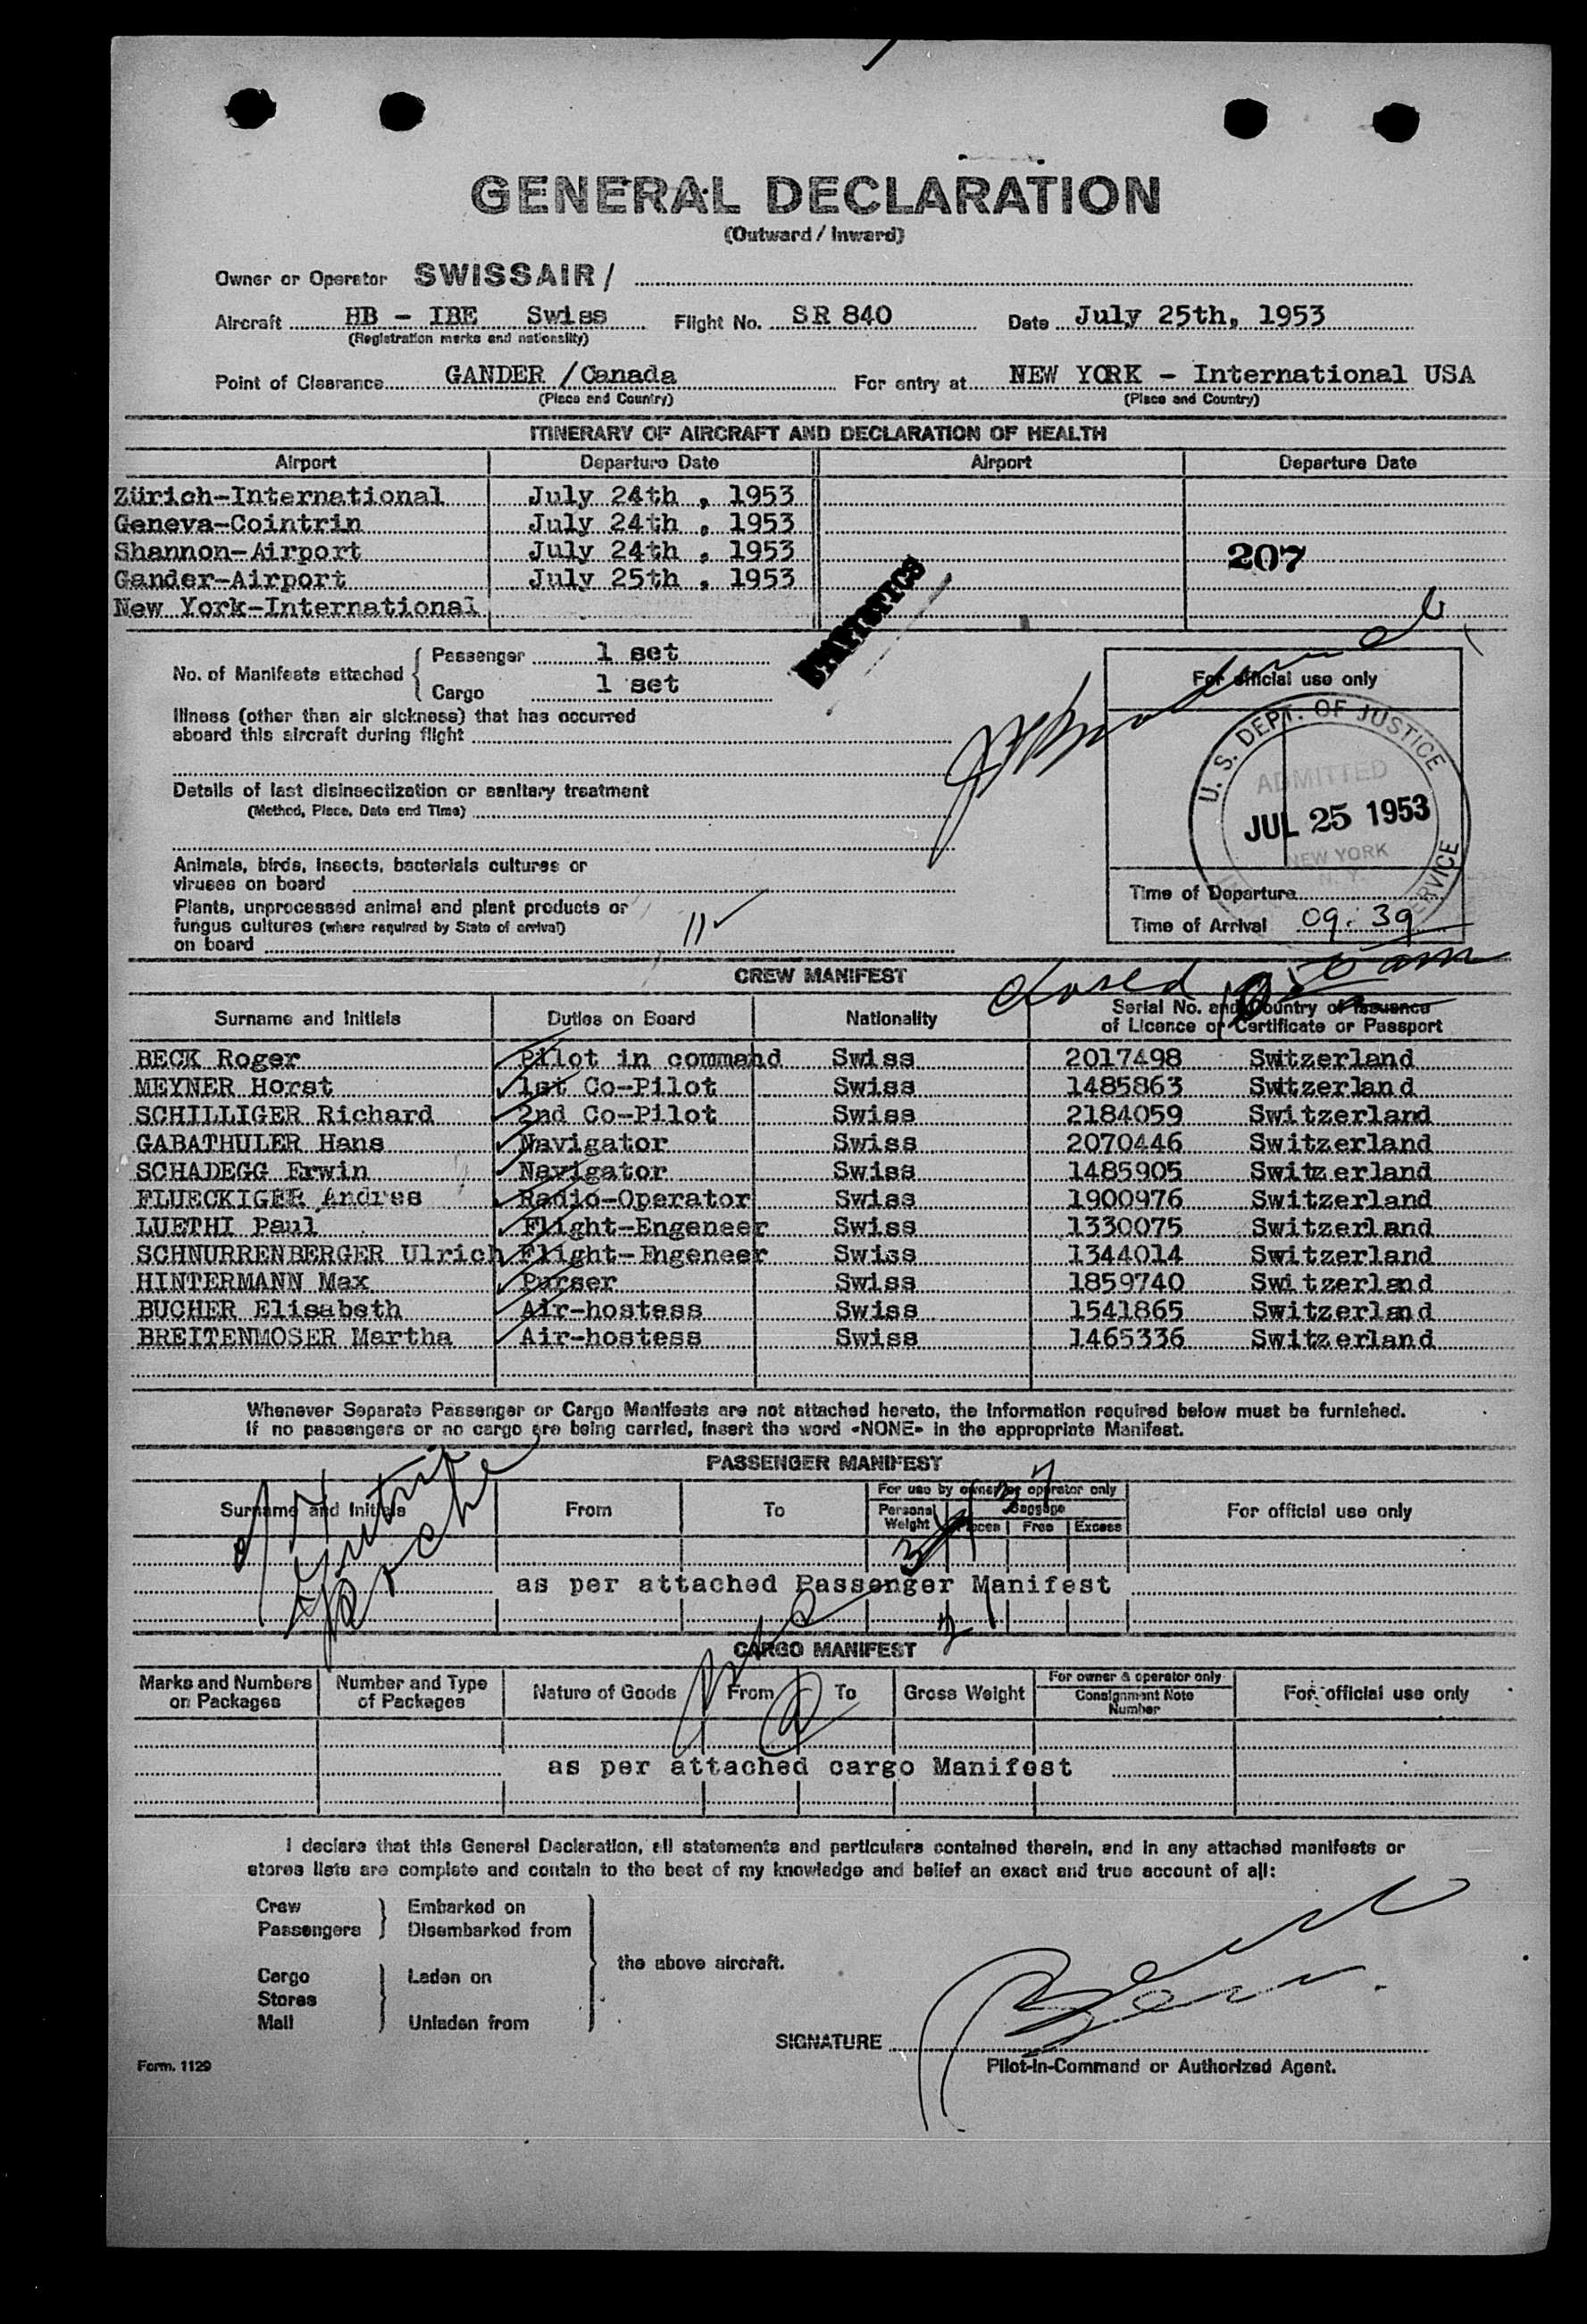 GENERAL DECLARATION
(Outward / Inward)
Owner or Operator SWISSAIR /
Aircraft HB - IBE Swiss Flight No. SR 840 Date July 25th, 1953
(Registration marks and nationality)
Point of Clearance GANDER /Canada For entry at NEW YORK - International USA
(Place and Country) (Place and Country)
ITINERARY OF AIRCRAFT AND DECLARATION OF HEALTH
Airport Departure Date Airport Departure Date
Zürich-International July 24th , 1953
Geneva-Cointrin July 24th , 1953
Shannon-Airport July 24th , 1953
207
Gander-Airport July 25th , 1953
New York-International
STATISTICS
No. of Manifests attached { Passenger 1 set
Cargo 1 set
For official use only
Illness (other than air sickness) that has occurred
aboard this aircraft during flight
U. S. DEPT. OF JUSTICE
ADMITTED
JUL 25 1953
NEW YORK
N. Y.
SERVICE
Details of last disinsectization or sanitary treatment
(Method, Place, Date and Time)
Animals, birds, insects, bacterials cultures or
viruses on board
Plants, unprocessed animal and plant products or
fungus cultures (where required by State of arrival)
on board
11 ✓
Time of Departure
Time of Arrival 09:39
closed
CREW MANIFEST
Surname and Initials Duties on Board Nationality Serial No. and Country of Issuance
of Licence or Certificate or Passport
BECK Roger Pilot in command Swiss 2017498 Switzerland
MEYNER Horst 1st Co-Pilot Swiss 1485863 Switzerland
SCHILLIGER Richard 2nd Co-Pilot Swiss 2184059 Switzerland
GABATHULER Hans Navigator Swiss 2070446 Switzerland
SCHADEGG Erwin Navigator Swiss 1485905 Switzerland
FLUECKIGER Andres Radio-Operator Swiss 1900976 Switzerland
LUETHI Paul Flight-Engeneer Swiss 1330075 Switzerland
SCHNURRENBERGER Ulrich Flight-Engeneer Swiss 1344014 Switzerland
HINTERMANN Max Purser Swiss 1859740 Switzerland
BUCHER Elisabeth Air-hostess Swiss 1541865 Switzerland
BREITENMOSER Martha Air-hostess Swiss 1465336 Switzerland
Whenever Separate Passenger or Cargo Manifests are not attached hereto, the information required below must be furnished.
If no passengers or no cargo are being carried, insert the word «NONE» in the appropriate Manifest.
PASSENGER MANIFEST
Surname and Initials From To For use by owner or operator only For official use only
Personal Weight Baggage
Pieces Free Excess
as per attached Passenger Manifest
CARGO MANIFEST
Marks and Numbers on Packages Number and Type of Packages Nature of Goods From To Gross Weight For owner & operator only For official use only
Consignment Note Number
as per attached cargo Manifest
I declare that this General Declaration, all statements and particulars contained therein, and in any attached manifests or
stores lists are complete and contain to the best of my knowledge and belief an exact and true account of all:
Crew } Embarked on
Passengers Disembarked from
the above aircraft.
Cargo } Laden on
Stores
Mail Unladen from
SIGNATURE
Form. 1129 Pilot-in-Command or Authorized Agent.